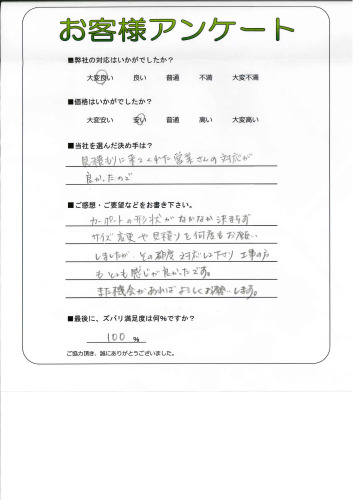 お客様アンケート
■弊社の対応はいかがでしたか?
大変良い 良い 普通 不満 大変不満
■価格はいかがでしたか?
大変安い 安い 普通 高い 大変高い
■当社を選んだ決め手は?
見積もりに来てくれた営業さんの対応が
良かったので
■ご感想・ご要望などをお書き下さい。
カーポートの形状がなかなか決まらず
サイズ変更や見積りを何度もお願い
しましたが、その都度対応して下さり 工事の方
もとても感じが良かったです。
また機会があればよろしくお願いします。
■最後に、ズバリ満足度は何%ですか?
100 %
ご協力頂き、誠にありがとうございました。